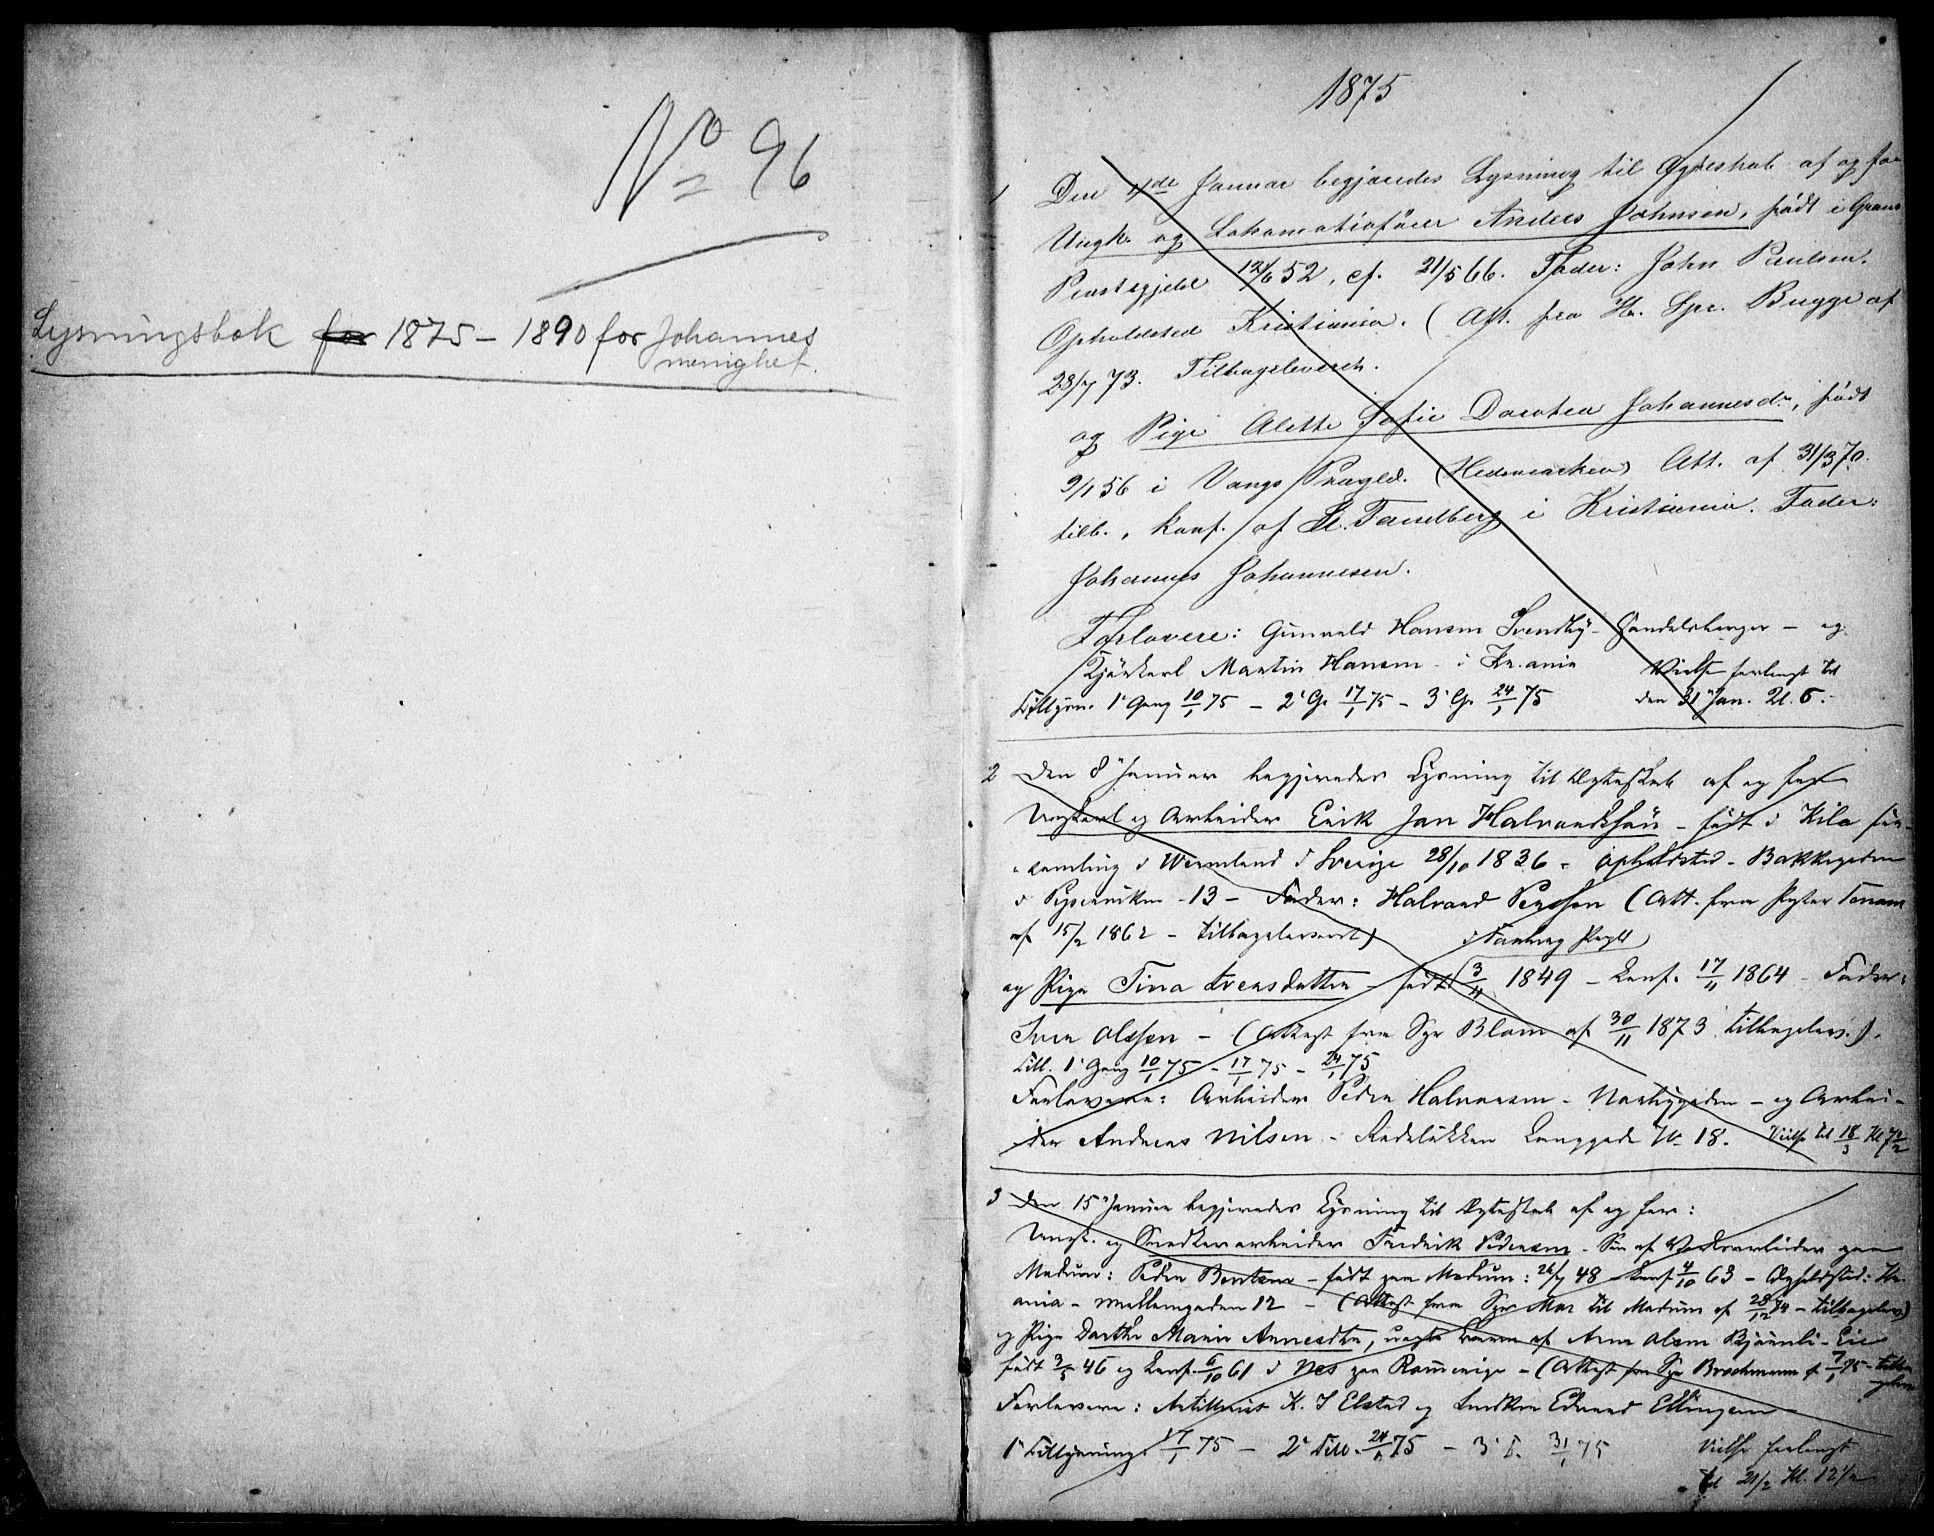 No 96
Lysningsbok for 1875 – 1890 for Johannes
menighet.
1875
1 Den 4de Januar begjæredes Lysning til Ægteskab af og for
Ungk. og Lokomotivfører Anders Johnsen, født i Grans
Præstegjeld 12/6 52, cf. 21/5 66. Fader: John Paulsen.
Opholdsted Kristiania. (Att. fra Hr. Spr. Bugge af
28/7 73. Tilbagelevert.
og Pige Alette Sofie Dorotea Johannesdr., født
9/1 56 i Vangs Præsgld. (Hedemarken) Att. af 31/3 70.
tilb., konf. af St. Tandberg i Kristiania. Fader:
Johannes Johannesen.
Forlovere: Gunvald Hansen Svendby – Handelsborger – og
Martin Hansen – i Kr.ania Vielse forlangt til
Tillysn. 1' Gang 10/1 75 – 2' G. 17/1 75 – 3' G. 24/1 75 den 31' Jan. Kl. 5.
2 Den 8' Januar begjæredes Lysning til Ægteskab af og for
Ungkarl og Arbeider Erik Jan – født i Kila For-
samling i Wermland i Sverige 28/10 1836 – Opholdsted – Bakkegaden
i Piperviken – 13 – Fader: Halvard (Att. fra
af 15/2 1862 – tilbageleveret)
og Pige Tina Iversdatter – født 3/11 1849 – Conf. 17/11 1864 – Fader:
Iver Olsen – (Attest fra Spr Blom af 30/11 1873 tilbagelev.).
Till. 1' Gang 10/1 75 – 17/1 75 – 24/1 75
Forlovere: Arbeider Peder Halvorsen – – og Arbei-
der Andreas Nilsen – Rodeløkken Langgade No 18. Vielse til 18/3 Kl 7 1/2
3 Den 15' Januar begjæredes Lysning til Ægteskab af og for:
Ungk. og Snedkerarbeider Fredrik Pedersen – Søn af Værksarbeider paa
Modum: Peder Bentsen – født paa Modum: 26/7 48 Conf 4/10 63 – Opholdsted: Kr.
ania – Mellemgaden 12 – (Attest fra Spr til Modum af 28/12 74 – tilbagelev)
og Pige Dorthe Marie Arnesdtr, uægte Barn af Arne Olsen –
født 3/5 46 og Conf. 6/10 61 i Nes paa Romerige – (Attest fra Spr Brochmann af 7/1 75 – tilba-
gelev
Forlovere: Artillerist K. J Elstad og Snedker Edvard Ellingsen
1' Tillysning: 17/1 75 – 2' Till. 24/1 75 – 3' T. 31/1 75 Vielse forlangt
til 21/2 Kl. 12 1/2